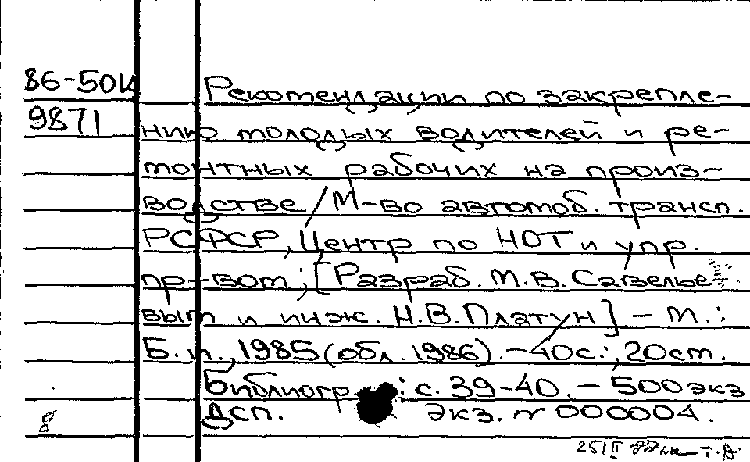 86-50к
9871
Рекомендации по закрепле-
нию молодых водителей и ре-
монтных рабочих на произ-
водстве / М-во автомоб. трансп.
РСФСР, Центр по НОТ и упр.
пр-вом; [Разраб. М.В. Савелье-
вым и инж. Н.В. Платун] – М.:
Б. и., 1985 (обл. 1986). – 40с.; 20см.
Библиогр.: с. 39-40. – 500 экз
Дсп. Экз. n 000004.